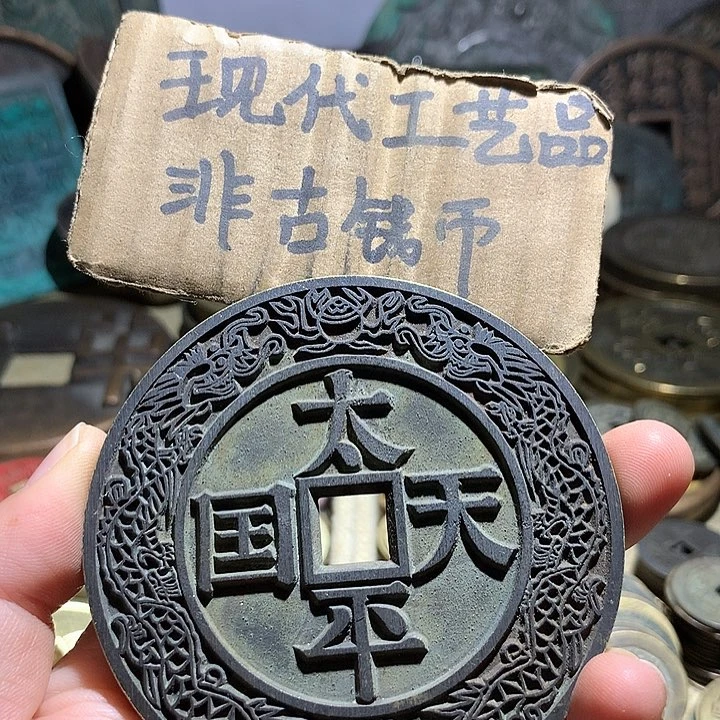 现代工艺品
非古钱币
太平天国